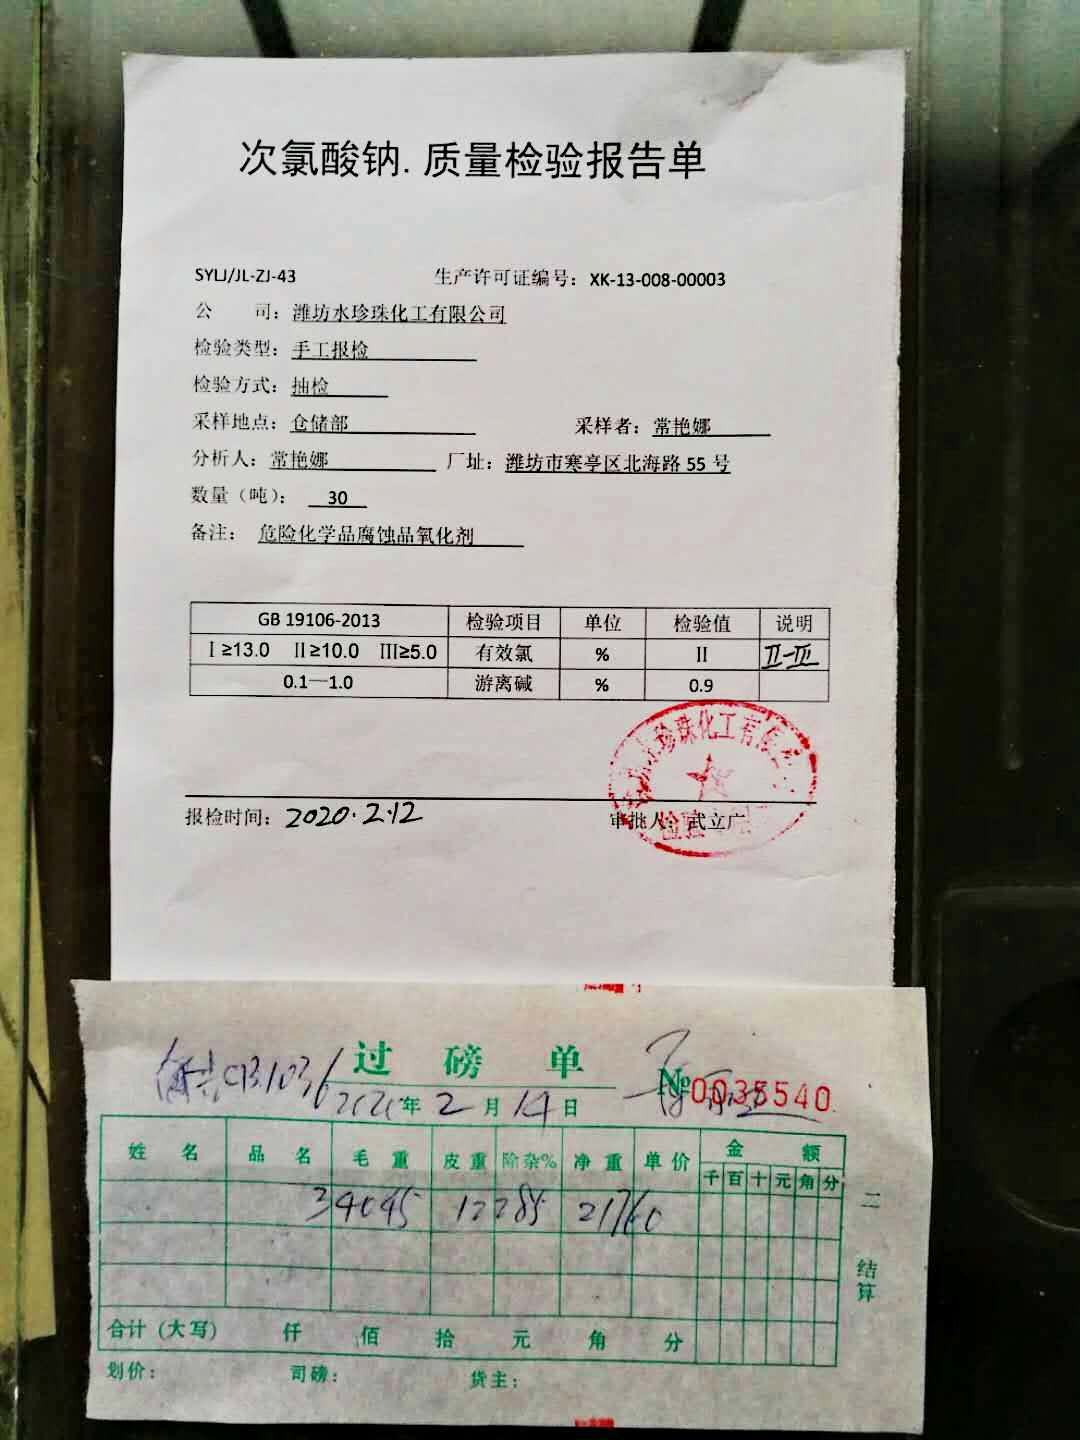 次氯酸钠.质量检验报告单
SYLJ/JL-ZJ-43 生产许可证编号：XK-13-008-00003
公 司：潍坊水珍珠化工有限公司
检验类型：手工报检
检验方式：抽检
采样地点：仓储部 采样者：常艳娜
分析人：常艳娜 厂址：潍坊市寒亭区北海路 55 号
数量（吨）： 30
备注： 危险化学品腐蚀品氧化剂
GB 19106-2013 检验项目 单位 检验值 说明
Ⅰ≥13.0 Ⅱ≥10.0 Ⅲ≥5.0 有效氯 % Ⅱ Ⅱ-Ⅲ
0.1—1.0 游离碱 % 0.9
珍珠化工有限
报检时间：2020.2.12 审批人：武立广
检验
过磅单
№0035540
2020年2月14日
姓名 品名 毛重 皮重 除杂% 净重 单价 金额
千 百 十 元 角 分
34045 12285 21760
二 结算
合计(大写) 仟 佰 拾 元 角 分
划价： 司磅： 货主：